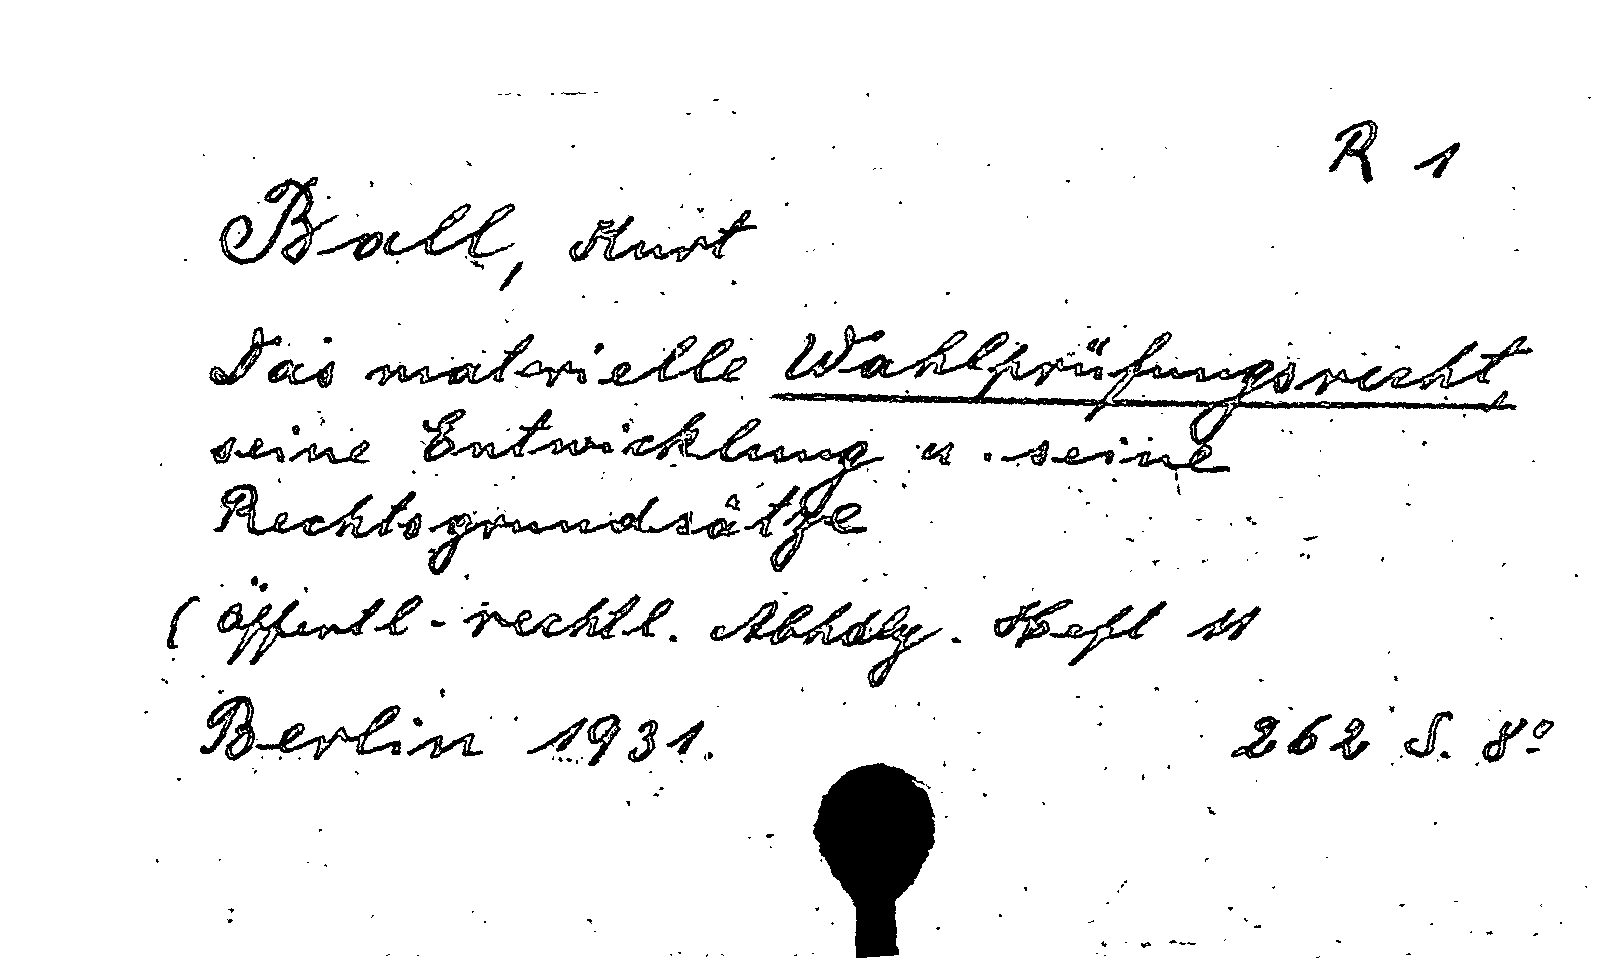 R 1
Ball, Kurt
Das materielle Wahlprüfungsrecht,
seine Entwicklung u. seine
Rechtsgrundsätze
( öffentl.-rechtl. Abhdlg. Heft 11
Berlin 1931. 262 S. 8º